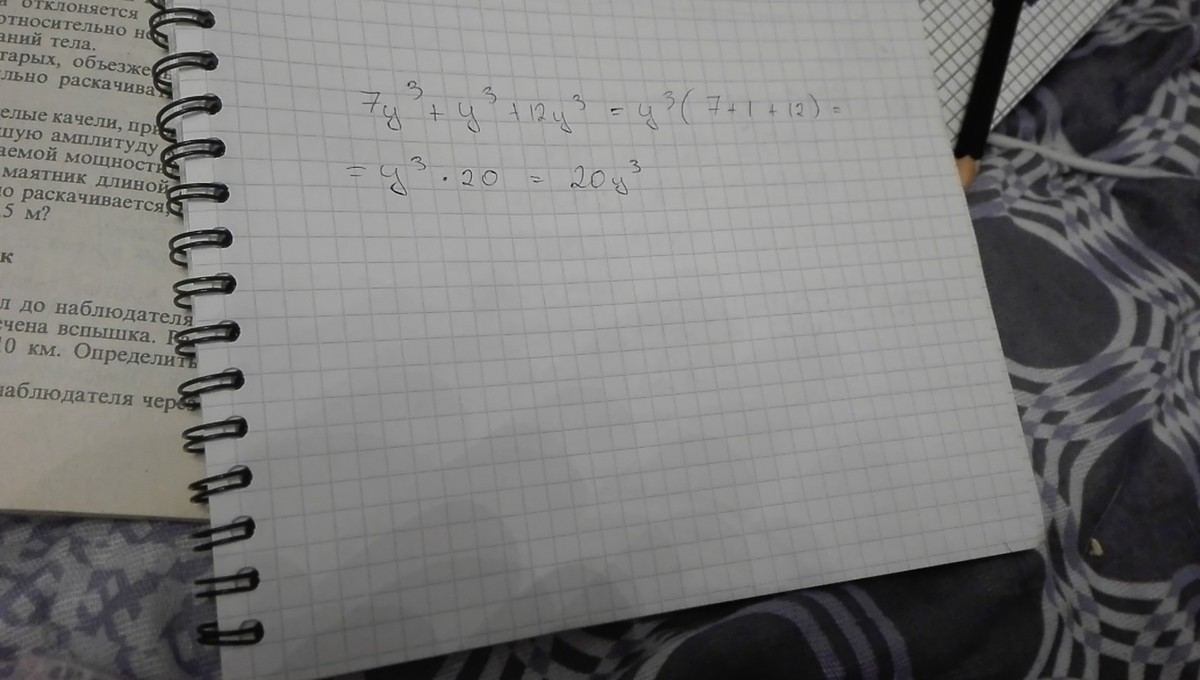 отклоняется
относительно
аний тела.
тарых,
льно
елые качели, при
шую амплитуду
аемой мощности
маятник длиной
но раскачивается,
,5 м?
к
л до наблюдателя
ечена вспышка.
10 км. Определить
наблюдателя через
7y³ + y³ + 12y³ = y³(7+1+12) =
= y³ · 20 = 20y³